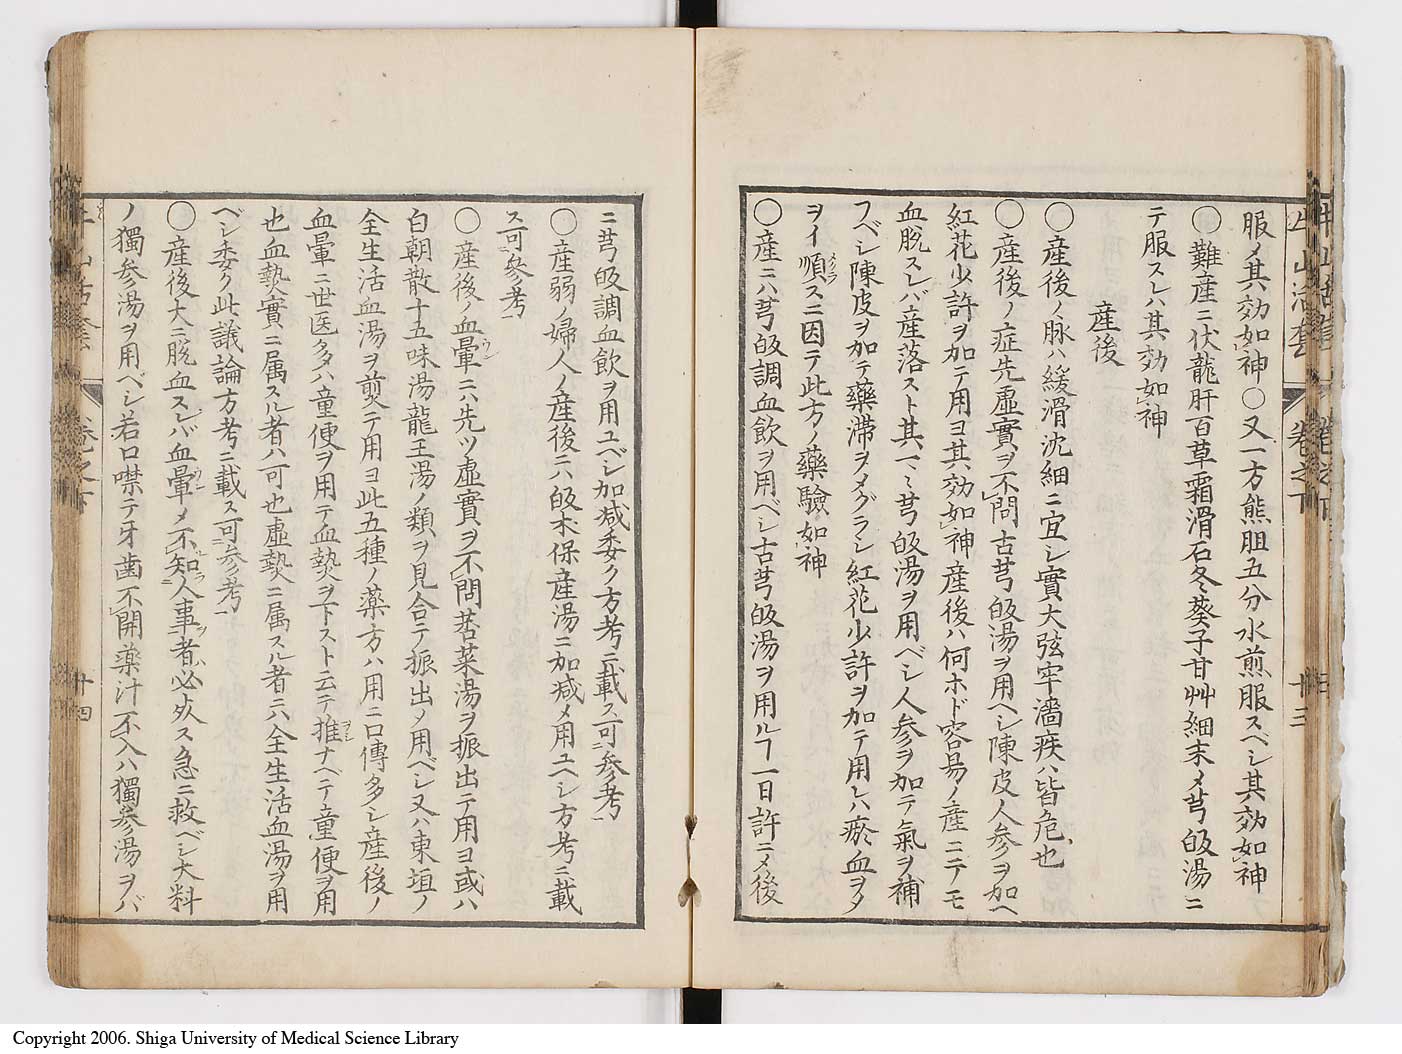 服〆其効如神〇又一方熊胆五分水煎服スベシ其効如神
〇難産ニ伏龍肝百草霜滑石冬葵子甘艸細末〆芎皈湯ニ
テ服スレハ其効如神
産後
〇産後ノ脉ハ緩滑沈細ニ宜シ實大弦牢濇疾ハ皆危也
〇産後ノ症先虚實ヲ不問古芎皈湯ヲ用ヘシ陳皮人参ヲ加ヘ
紅花少許ヲ加テ用ヨ其効如神産後ハ何ホド容易ノ産ニテモ
血脱スレバ産落スト其〻〻芎皈湯ヲ用ベシ人参ヲ加テ氣ヲ補
フベシ陳皮ヲ加テ藥滞ヲメグラシ紅花少許ヲ加テ用レハ瘀血ヲタ
ヲイ順スニ因テ此方ノ藥驗如神
〇産ニハ芎皈調血飲ヲ用ベシ古芎皈湯ヲ用ルヿ一日許ニ〆後
牛山活套 卷之下 十三
ニ芎皈調血飲ヲ用ユベシ加減委ク方考ニ載ス可参考
〇産弱ノ婦人ノ産後ニハ皈朮保産湯ニ加減〆用ユヘシ方考ニ載
ス可参考
〇産後ノ血暈ニハ先ツ虚實ヲ不問莟菜湯ヲ振出テ用ヨ或ハ
白朝散十五味湯龍王湯ノ類ヲ見合テ振出〆用ベシ又ハ東垣ノ
全生活血湯ヲ煎テ用ヨ此五種ノ薬方ハ用ニ口傳多シ産後ノ
血暈ニ世医多ハ童便ヲ用テ血熱ヲ下スト云テ推ナヘテ童便ヲ用
也血熱實ニ属スル者ハ可也虚熱ニ属スル者ニハ全生活血湯ヲ用
ベシ委ク此議論方考ニ載ス可参考
〇産後大ニ脱血スレバ血暈〆不知人事者必死ス急ニ救ベシ大料
ノ獨参湯ヲ用ベシ若口噤テ牙歯不開薬汁不入ハ獨参湯ヲバ
牛山活套 卷之下 十四
Copyright 2006. Shiga University of Medical Science Library